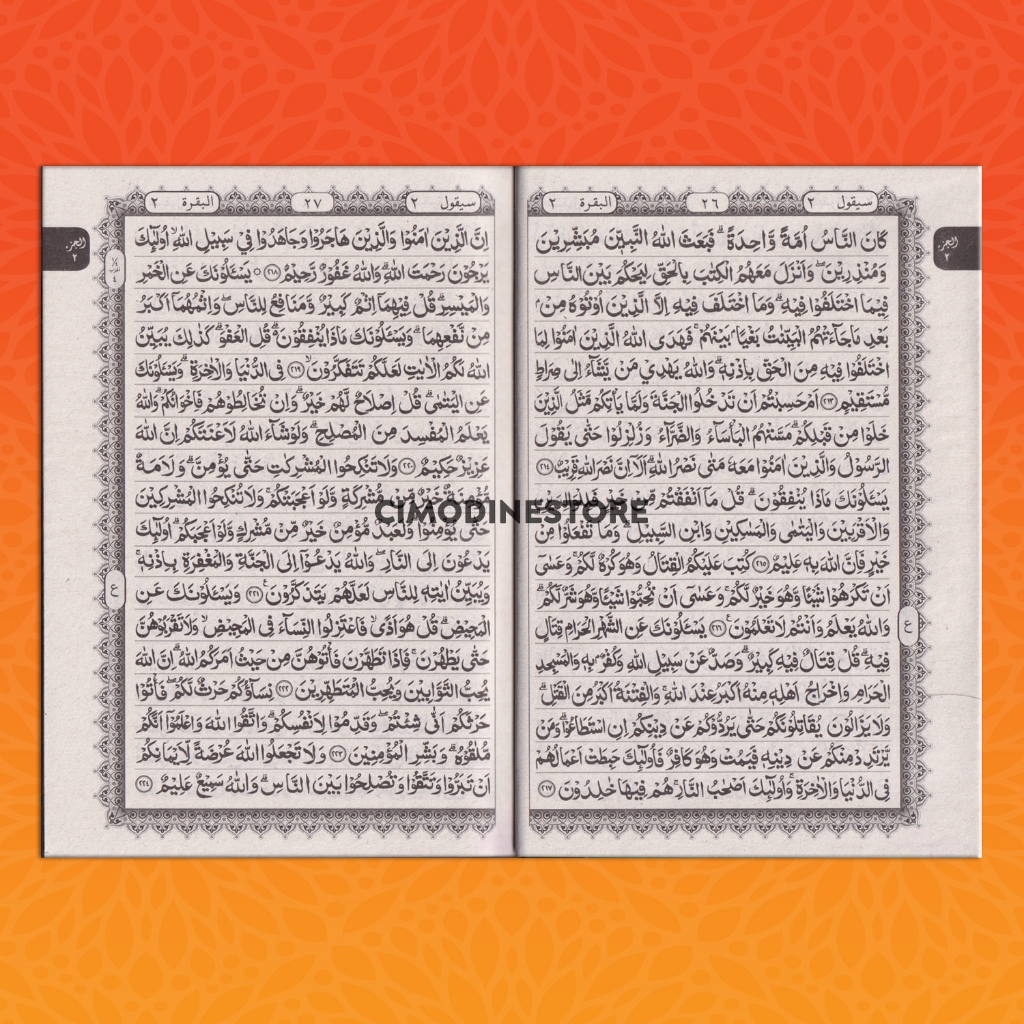 سيقول ٢
٢٦
البقرة ٢
الجزء
٢
كَانَ النَّاسُ اُمَّةً وَّاحِدَةً ۗ فَبَعَثَ اللّٰهُ النَّبِيّٖنَ مُبَشِّرِيْنَ
وَمُنْذِرِيْنَ ۖ وَاَنْزَلَ مَعَهُمُ الْكِتٰبَ بِالْحَقِّ لِيَحْكُمَ بَيْنَ النَّاسِ
فِيْمَا اخْتَلَفُوْا فِيْهِ ۗ وَمَا اخْتَلَفَ فِيْهِ اِلَّا الَّذِيْنَ اُوْتُوْهُ مِنْۢ
بَعْدِ مَا جَاۤءَتْهُمُ الْبَيِّنٰتُ بَغْيًا ۢ بَيْنَهُمْ ۚ فَهَدَى اللّٰهُ الَّذِيْنَ اٰمَنُوْا لِمَا
اخْتَلَفُوْا فِيْهِ مِنَ الْحَقِّ بِاِذْنِهٖ ۗ وَاللّٰهُ يَهْدِيْ مَنْ يَّشَاۤءُ اِلٰى صِرَاطٍ
مُّسْتَقِيْمٍ ٢١٣ اَمْ حَسِبْتُمْ اَنْ تَدْخُلُوا الْجَنَّةَ وَلَمَّا يَأْتِكُمْ مَّثَلُ الَّذِيْنَ
خَلَوْا مِنْ قَبْلِكُمْ ۗ مَسَّتْهُمُ الْبَأْسَاۤءُ وَالضَّرَّاۤءُ وَزُلْزِلُوْا حَتّٰى يَقُوْلَ
الرَّسُوْلُ وَالَّذِيْنَ اٰمَنُوْا مَعَهٗ مَتٰى نَصْرُ اللّٰهِ ۗ اَلَآ اِنَّ نَصْرَ اللّٰهِ قَرِيْبٌ ٢١٤
يَسْـَٔلُوْنَكَ مَاذَا يُنْفِقُوْنَ ۗ قُلْ مَآ اَنْفَقْتُمْ مِّنْ خَيْرٍ فَلِلْوَالِدَيْنِ
وَالْاَقْرَبِيْنَ وَالْيَتٰمٰى وَالْمَسٰكِيْنِ وَابْنِ السَّبِيْلِ ۗ وَمَا تَفْعَلُوْا مِنْ
خَيْرٍ فَاِنَّ اللّٰهَ بِهٖ عَلِيْمٌ ٢١٥ كُتِبَ عَلَيْكُمُ الْقِتَالُ وَهُوَ كُرْهٌ لَّكُمْ ۚ وَعَسٰٓى
اَنْ تَكْرَهُوْا شَيْـًٔا وَّهُوَ خَيْرٌ لَّكُمْ ۚ وَعَسٰٓى اَنْ تُحِبُّوْا شَيْـًٔا وَّهُوَ شَرٌّ لَّكُمْ ۗ
وَاللّٰهُ يَعْلَمُ وَاَنْتُمْ لَا تَعْلَمُوْنَ ࣖ ٢١٦ يَسْـَٔلُوْنَكَ عَنِ الشَّهْرِ الْحَرَامِ قِتَالٍ
فِيْهِ ۗ قُلْ قِتَالٌ فِيْهِ كَبِيْرٌ ۗ وَصَدٌّ عَنْ سَبِيْلِ اللّٰهِ وَكُفْرٌۢ بِهٖ وَالْمَسْجِدِ
الْحَرَامِ وَاِخْرَاجُ اَهْلِهٖ مِنْهُ اَكْبَرُ عِنْدَ اللّٰهِ ۚ وَالْفِتْنَةُ اَكْبَرُ مِنَ الْقَتْلِ ۗ
وَلَا يَزَالُوْنَ يُقَاتِلُوْنَكُمْ حَتّٰى يَرُدُّوْكُمْ عَنْ دِيْنِكُمْ اِنِ اسْتَطَاعُوْا ۗ وَمَنْ
يَّرْتَدِدْ مِنْكُمْ عَنْ دِيْنِهٖ فَيَمُتْ وَهُوَ كَافِرٌ فَاُولٰۤىِٕكَ حَبِطَتْ اَعْمَالُهُمْ
فِى الدُّنْيَا وَالْاٰخِرَةِ ۚ وَاُولٰۤىِٕكَ اَصْحٰبُ النَّارِ ۚ هُمْ فِيْهَا خٰلِدُوْنَ ٢١٧
ع
سيقول ٢
٢٧
البقرة ٢
الجزء
٢
اِنَّ الَّذِيْنَ اٰمَنُوْا وَالَّذِيْنَ هَاجَرُوْا وَجَاهَدُوْا فِيْ سَبِيْلِ اللّٰهِ ۙ اُولٰۤىِٕكَ
يَرْجُوْنَ رَحْمَتَ اللّٰهِ ۗ وَاللّٰهُ غَفُوْرٌ رَّحِيْمٌ ٢١٨ ۞ يَسْـَٔلُوْنَكَ عَنِ الْخَمْرِ
وَالْمَيْسِرِ ۗ قُلْ فِيْهِمَآ اِثْمٌ كَبِيْرٌ وَّمَنَافِعُ لِلنَّاسِ ۖ وَاِثْمُهُمَآ اَكْبَرُ
مِنْ نَّفْعِهِمَا ۗ وَيَسْـَٔلُوْنَكَ مَاذَا يُنْفِقُوْنَ ەۗ قُلِ الْعَفْوَ ۗ كَذٰلِكَ يُبَيِّنُ
اللّٰهُ لَكُمُ الْاٰيٰتِ لَعَلَّكُمْ تَتَفَكَّرُوْنَ ۙ ٢١٩ فِى الدُّنْيَا وَالْاٰخِرَةِ ۗ وَيَسْـَٔلُوْنَكَ
عَنِ الْيَتٰمٰى ۗ قُلْ اِصْلَاحٌ لَّهُمْ خَيْرٌ ۗ وَاِنْ تُخَالِطُوْهُمْ فَاِخْوَانُكُمْ ۗ وَاللّٰهُ
يَعْلَمُ الْمُفْسِدَ مِنَ الْمُصْلِحِ ۗ وَلَوْ شَاۤءَ اللّٰهُ لَاَعْنَتَكُمْ ۗ اِنَّ اللّٰهَ
عَزِيْزٌ حَكِيْمٌ ٢٢٠ وَلَا تَنْكِحُوا الْمُشْرِكٰتِ حَتّٰى يُؤْمِنَّ ۗ وَلَاَمَةٌ
مُّؤْمِنَةٌ خَيْرٌ مِّنْ مُّشْرِكَةٍ وَّلَوْ اَعْجَبَتْكُمْ ۚ وَلَا تُنْكِحُوا الْمُشْرِكِيْنَ
حَتّٰى يُؤْمِنُوْا ۗ وَلَعَبْدٌ مُّؤْمِنٌ خَيْرٌ مِّنْ مُّشْرِكٍ وَّلَوْ اَعْجَبَكُمْ ۗ اُولٰۤىِٕكَ
يَدْعُوْنَ اِلَى النَّارِ ۖ وَاللّٰهُ يَدْعُوْٓا اِلَى الْجَنَّةِ وَالْمَغْفِرَةِ بِاِذْنِهٖ ۚ
وَيُبَيِّنُ اٰيٰتِهٖ لِلنَّاسِ لَعَلَّهُمْ يَتَذَكَّرُوْنَ ࣖ ٢٢١ وَيَسْـَٔلُوْنَكَ عَنِ
الْمَحِيْضِ ۗ قُلْ هُوَ اَذًى ۙ فَاعْتَزِلُوا النِّسَاۤءَ فِى الْمَحِيْضِ ۙ وَلَا تَقْرَبُوْهُنَّ
حَتّٰى يَطْهُرْنَ ۚ فَاِذَا تَطَهَّرْنَ فَأْتُوْهُنَّ مِنْ حَيْثُ اَمَرَكُمُ اللّٰهُ ۗ اِنَّ اللّٰهَ
يُحِبُّ التَّوَّابِيْنَ وَيُحِبُّ الْمُتَطَهِّرِيْنَ ٢٢٢ نِسَاۤؤُكُمْ حَرْثٌ لَّكُمْ ۖ فَأْتُوْا
حَرْثَكُمْ اَنّٰى شِئْتُمْ ۖ وَقَدِّمُوْا لِاَنْفُسِكُمْ ۗ وَاتَّقُوا اللّٰهَ وَاعْلَمُوْٓا اَنَّكُمْ
مُّلٰقُوْهُ ۗ وَبَشِّرِ الْمُؤْمِنِيْنَ ٢٢٣ وَلَا تَجْعَلُوا اللّٰهَ عُرْضَةً لِّاَيْمَانِكُمْ
اَنْ تَبَرُّوْا وَتَتَّقُوْا وَتُصْلِحُوْا بَيْنَ النَّاسِ ۗ وَاللّٰهُ سَمِيْعٌ عَلِيْمٌ ٢٢٤
ع
CIMODINESTORE